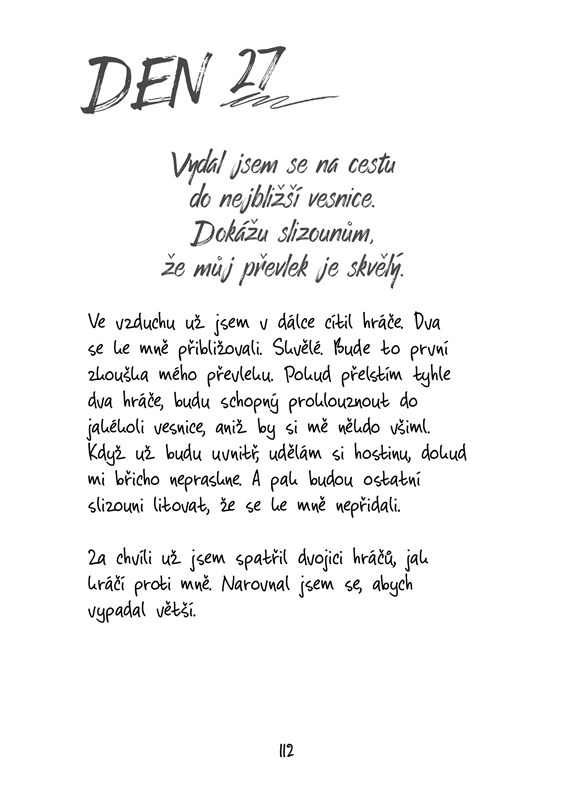 DEN 27
Vydal jsem se na cestu
do nejbližší vesnice.
Dokážu slizounům,
že můj převlek je skvělý.
Ve vzduchu už jsem v dálce cítil hráče. Dva
se ke mně přibližovali. Skvělé. Bude to první
zkouška mého převleku. Pokud přelstím tyhle
dva hráče, budu schopný proklouznout do
jakékoli vesnice, aniž by si mě někdo všiml.
Když už budu uvnitř, udělám si hostinu, dokud
mi břicho nepraskne. A pak budou ostatní
slizouni litovat, že se ke mně nepřidali.
Za chvíli už jsem spatřil dvojici hráčů, jak
kráčí proti mně. Narovnal jsem se, abych
vypadal větší.
112